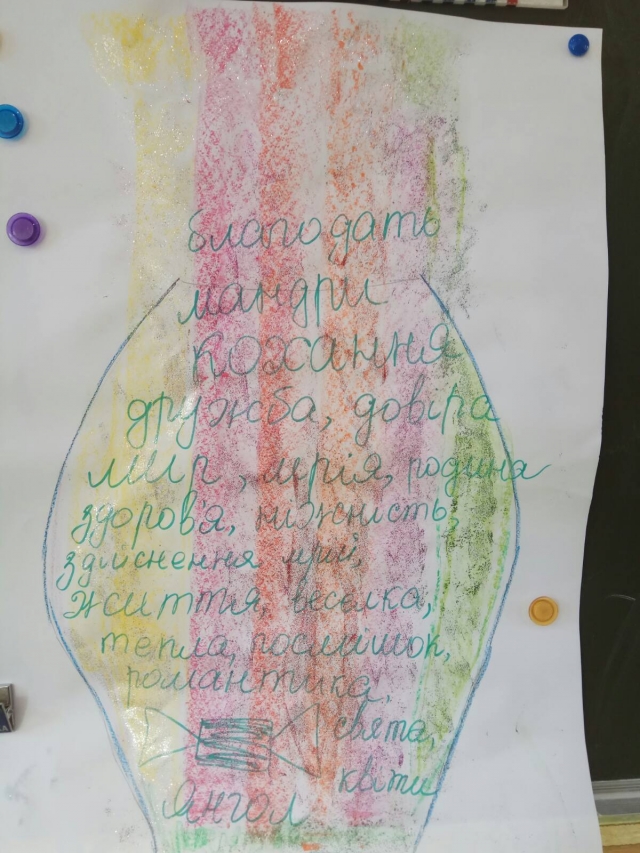 благодать
мандри
кохання
дружба, довіра
мир, мрія, родина
здоров'я, ніжність,
здійснення мрій,
життя, веселка,
тепла, посмішок,
романтика,
свята,
квіти
Янгол